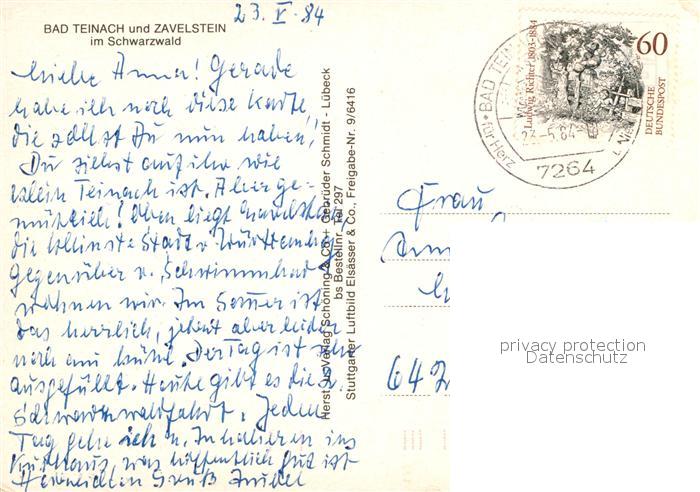 23. V. 84
BAD TEINACH und ZAVELSTEIN
im Schwarzwald
Liebe Anna! Gerade
habe ich noch diese Karte,
die sollst Du nun haben!
Du siehst auf ihr wie
klein Teinach ist. Aber ge-
mütlich! Oben liegt Zavelstein
die kleinste Stadt v. Württemberg
Gegenüber v. Schwimmbad
wohnen wir. Im Sommer ist
das herrlich, jetzt aber leider
noch zu kühl. Der Tag ist sehr
ausgefüllt. Heute gibt es die 2.
Schwarzwaldfahrt. Jeden
Tag gehe ich z. Inhalieren ins
Kurhaus, was hoffentlich gut ist
Herzlichen Gruß
Herst. u. Verlag Schöning & Co + Gebrüder Schmidt - Lübeck
bs Bestellnr. Tei 297
Stuttgarter Luftbild Elsässer & Co., Freigabe-Nr. 9/6416
Ludwig Richter 1803-1884
60
DEUTSCHE
BUNDESPOST
BAD TEIN
im Herz
23.-5.84
7264
Frau
642
privacy protection
Datenschutz